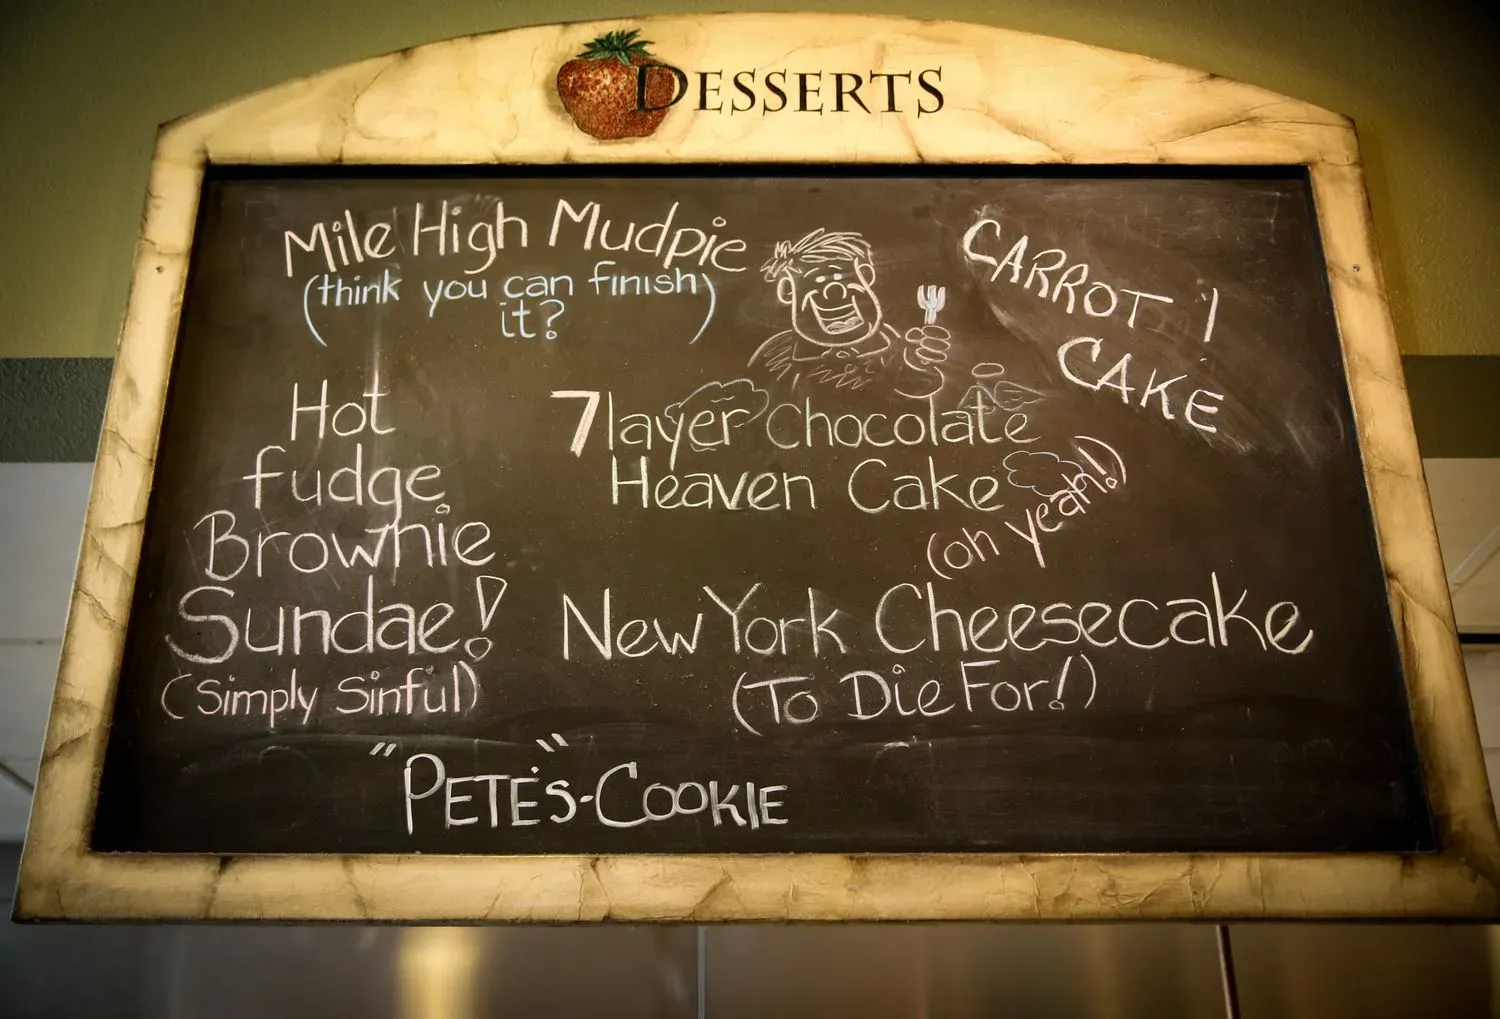 DESSERTS
Mile High Mudpie
(think you can finish
it?
)
CARROT !
CAKE
Hot
fudge
Brownie
Sundae!
(Simply Sinful)
7 layer Chocolate
Heaven Cake
(oh yeah!)
New York Cheesecake
(To Die For!)
"PETE'S"-COOKIE